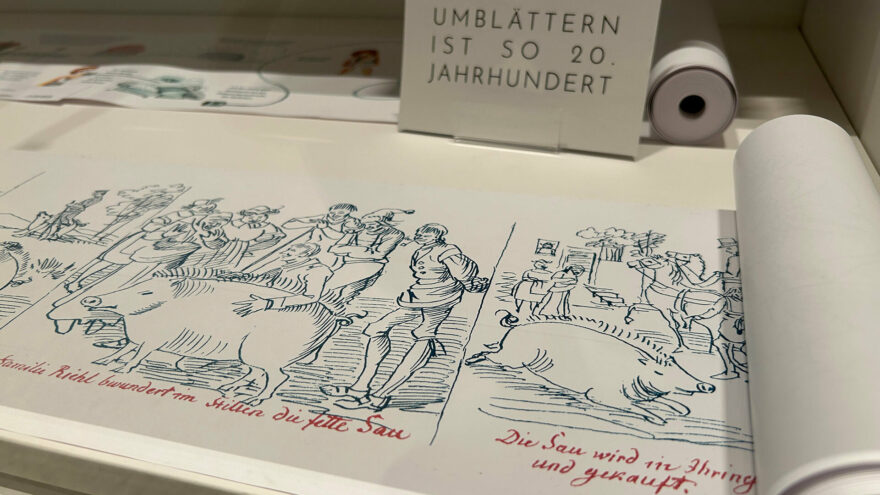 UMBLÄTTERN
IST SO 20.
JAHRHUNDERT
Familie Riehl bewundert im Stillen die fette Sau
Die Sau wird in Ihring
und gekauft.